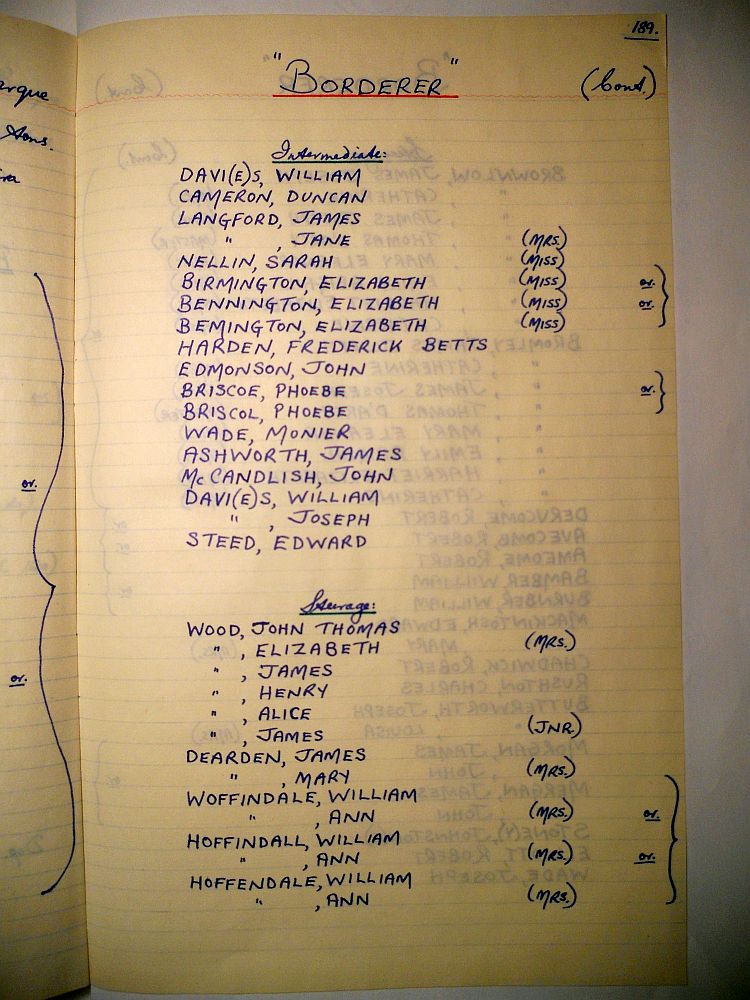 189.
"BORDERER"
(Cont.)
Intermediate:
DAVI(E)S, WILLIAM
CAMERON, DUNCAN
LANGFORD, JAMES
" , JANE (MRS.)
NELLIN, SARAH (MISS)
BIRMINGTON, ELIZABETH (MISS) or.
BENNINGTON, ELIZABETH (MISS) or.
BEMINGTON, ELIZABETH (MISS)
HARDEN, FREDERICK BETTS
EDMONSON, JOHN
BRISCOE, PHOEBE or.
BRISCOL, PHOEBE
WADE, MONIER
ASHWORTH, JAMES
McCANDLISH, JOHN
DAVI(E)S, WILLIAM
" , JOSEPH
STEED, EDWARD
Steerage:
WOOD, JOHN THOMAS
" , ELIZABETH (MRS.)
" , JAMES
" , HENRY
" , ALICE
" , JAMES (JNR.)
DEARDEN, JAMES
" , MARY (MRS.)
WOFFINDALE, WILLIAM
" , ANN (MRS.) or.
HOFFINDALL, WILLIAM
" , ANN (MRS.) or.
HOFFENDALE, WILLIAM
" , ANN (MRS.)
Sons.
or.
or.